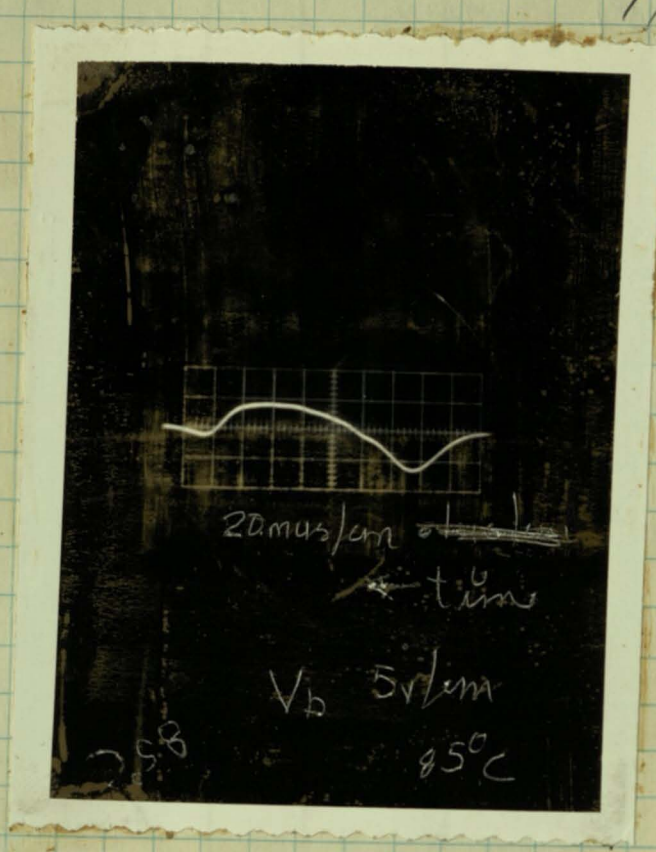 20mus/cm
← time
Vb 5v/cm
85°C